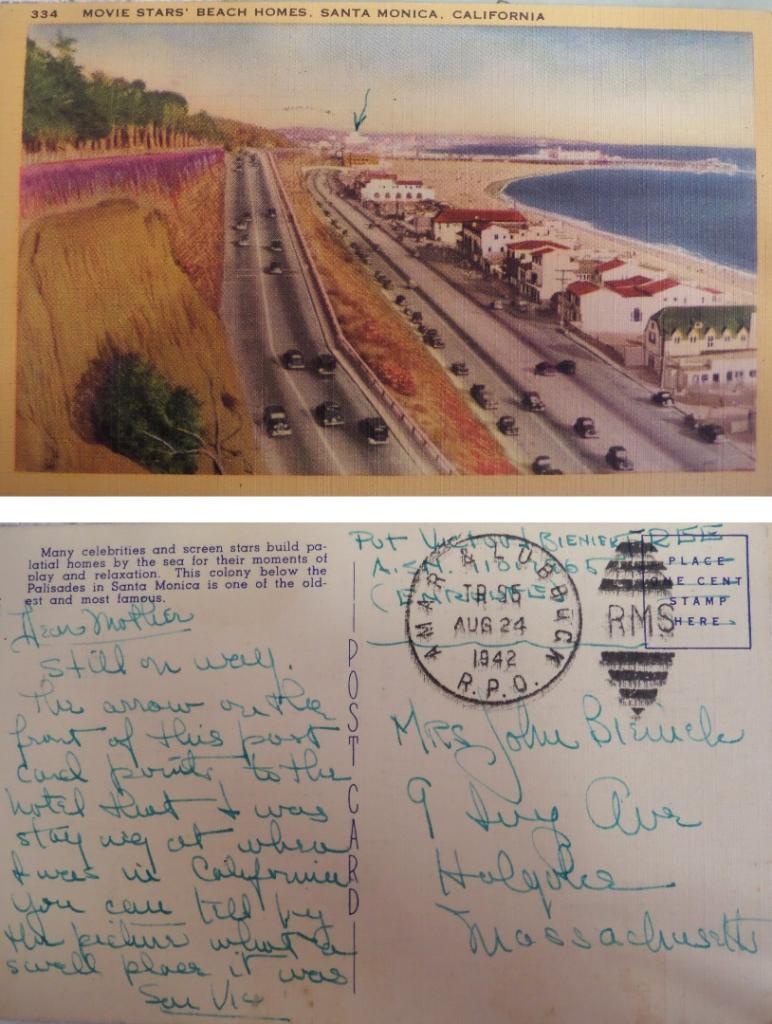 334 MOVIE STARS' BEACH HOMES, SANTA MONICA, CALIFORNIA
Many celebrities and screen stars build pa-
latial homes by the sea for their moments of
play and relaxation. This colony below the
Palisades in Santa Monica is one of the old-
est and most famous.
Dear Mother
Still on way.
The arrow on the
front of this post
card points to the
hotel that I was
staying at when
I was in California
You can tell by
the picture what a
swell place it was
Son Vic
POST CARD
Pvt Victor J Bieniek FREE
A.S.N.
(ENROUTE)
AMAR & LUBBOCK
TR 96
AUG 24
1942
R.P.O.
RMS
PLACE
ONE CENT
STAMP
HERE
Mrs John Bieniek
9 Ave
Holyoke
Massachusetts